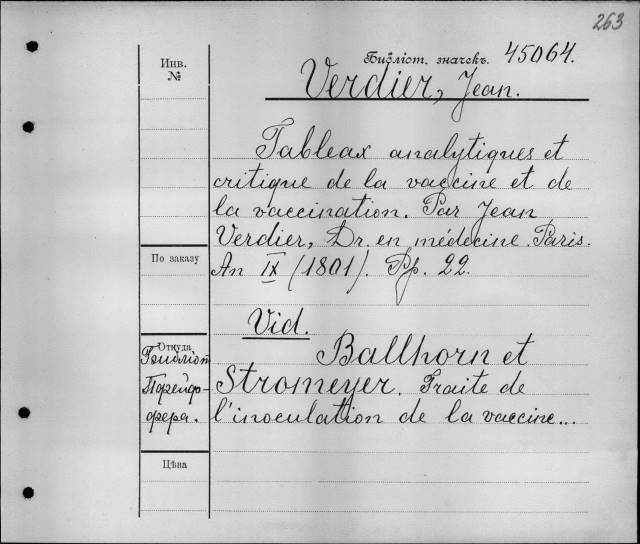 263
Инв.
№
Библіот. значекъ. 45064.
Verdier, Jean.
Tableax analytiques et
critique de la vaccine et de
la vaccination. Par Jean
Verdier, Dr. en médecine. Paris.
По заказу
An IX (1801). Pp. 22.
Vid.
Откуда
Ballhorn et
Stromeyer. Traite de
l'inoculation de la vaccine...
Библіот
Порейдо-
фера.
Цѣна